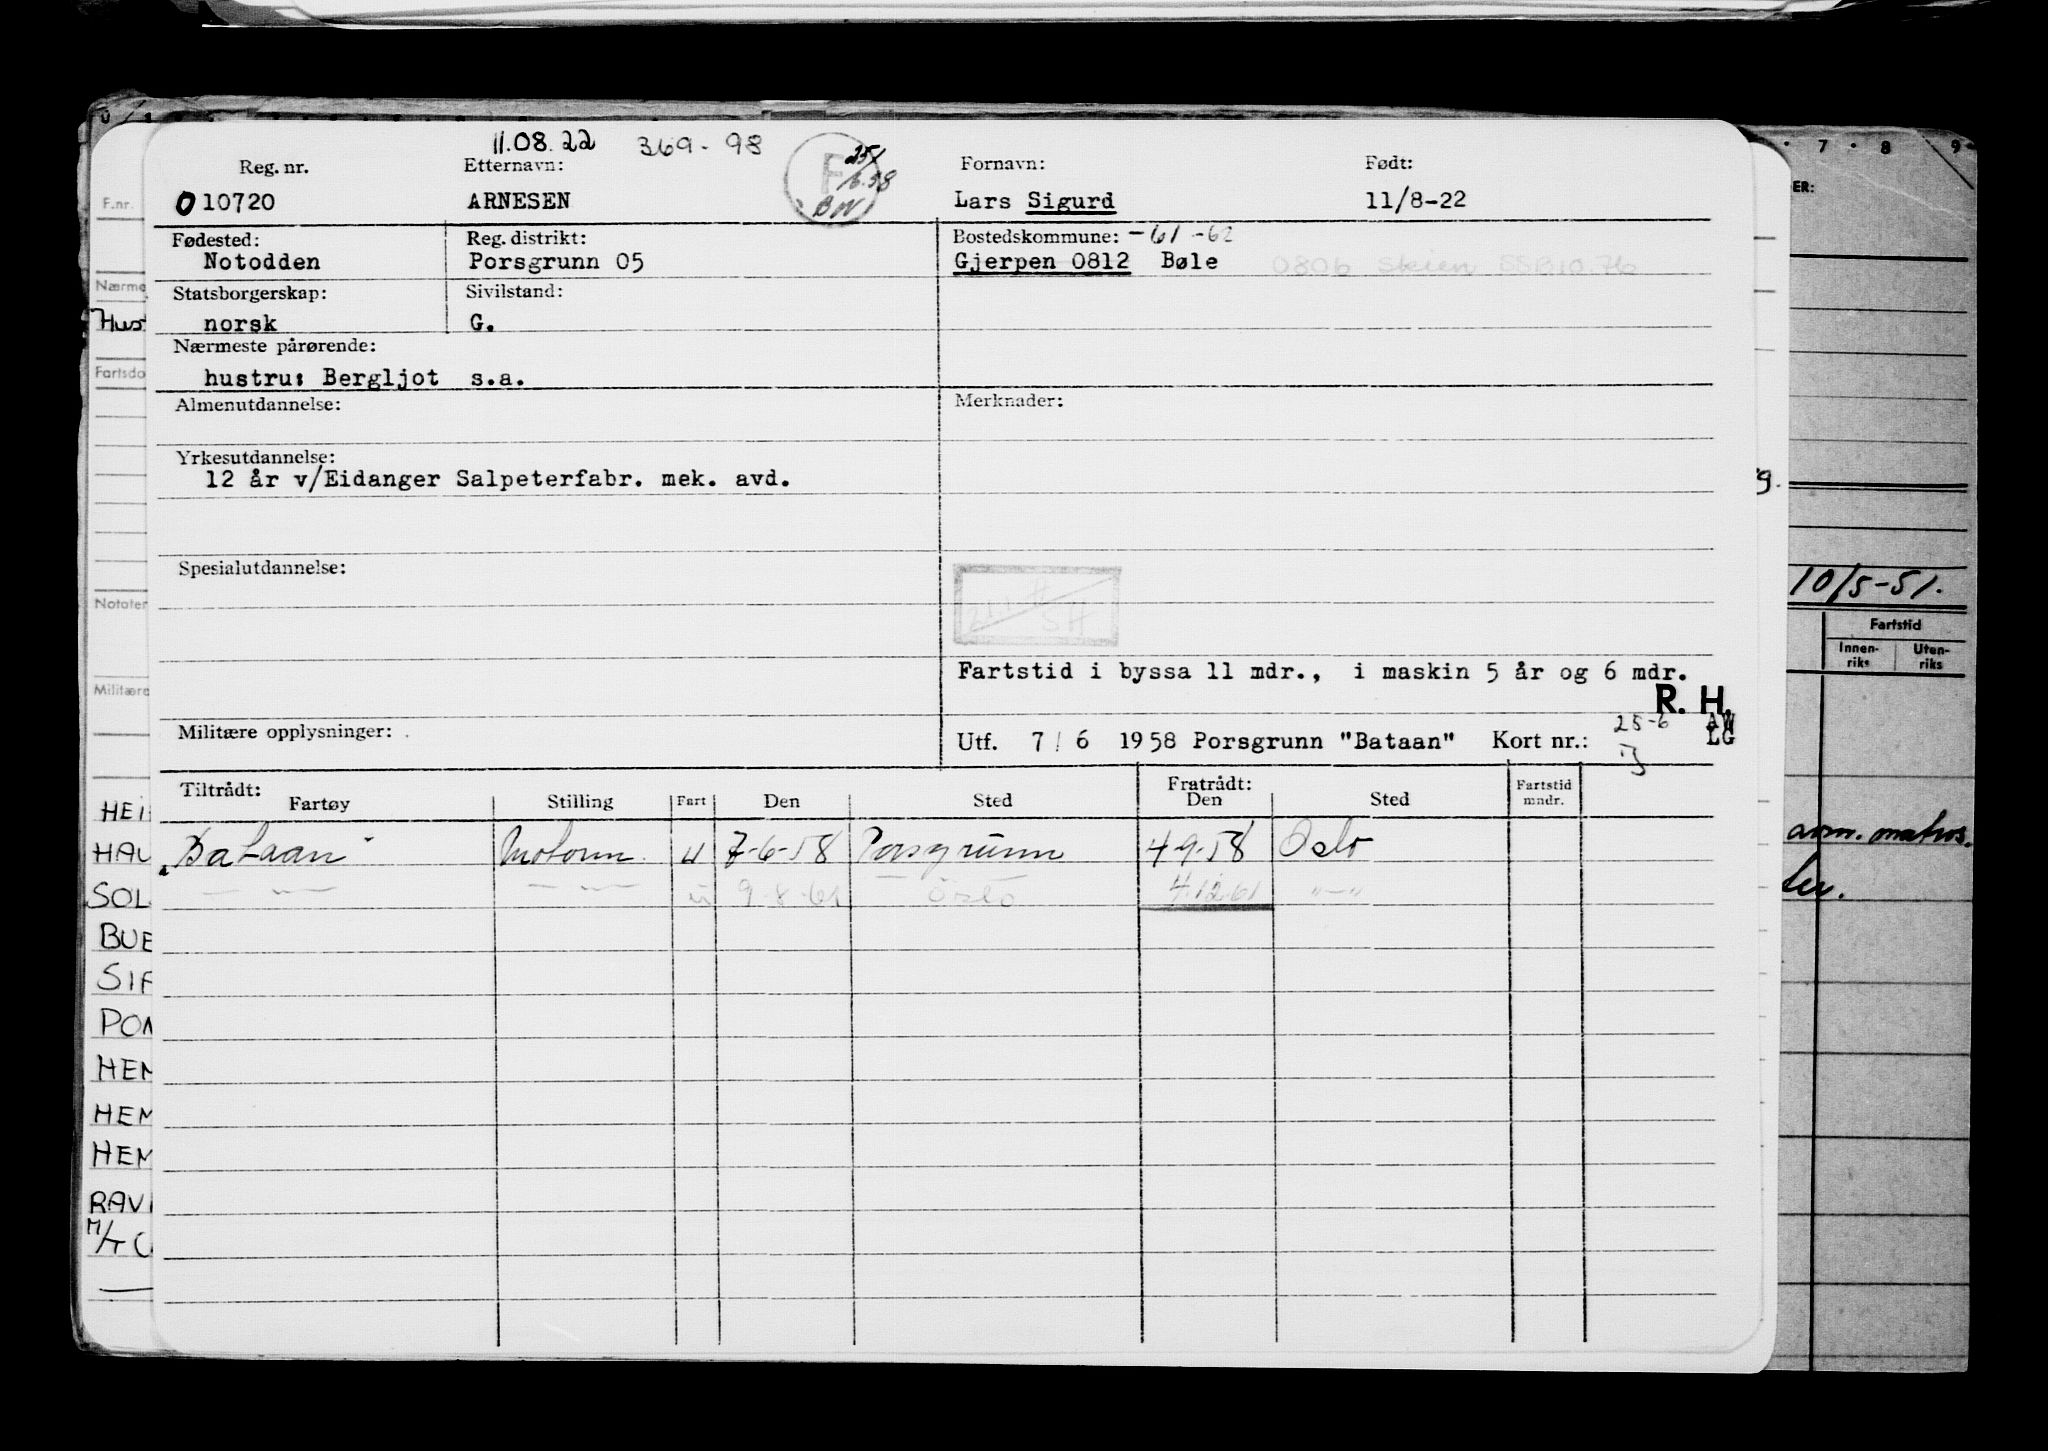 11.08.22 369-98
Reg. nr. Etternavn: Fornavn: Født:
010720 ARNESEN Lars Sigurd 11/8-22
F 25/6.58 BW
Fødested: Reg. distrikt: Bostedskommune: -61-62
Notodden Porsgrunn 05 Gjerpen 0812 Bøle 0806 Skien SSB10.76
Statsborgerskap: Sivilstand:
norsk G.
Nærmeste pårørende:
hustru: Bergljot s.a.
Almenutdannelse: Merknader:
Yrkesutdannelse:
12 år v/Eidanger Salpeterfabr. mek. avd.
Spesialutdannelse:
SH
Fartstid i byssa 11 mdr., i maskin 5 år og 6 mdr.
R. H.
Militære opplysninger: Utf. 7/6 1958 Porsgrunn "Bataan" Kort nr.: 25-6 LG
Tiltrådt: Fratrådt:
Fartøy Stilling Fart Den Sted Den Sted Fartstid mndr.
"Bataan" Motorm. U 7-6-58 Porsgrunn 4-9-58 Oslo
—"— —"— U 9-8-61 Oslo 4.12.61 "—"
F.nr.
Nærme
Hust
Fartsdo
Notater
Militære
HEI
HAU
SOL
BUE
SIF
PON
HEM
HEM
HEM
RAV
M/T
7 8 9
ER:
9.
10/5-51.
Fartstid
Innen-riks Uten-riks
matros.